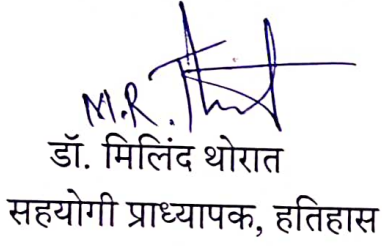 M.R.
डॉ. मिलिंद थोरात
सहयोगी प्राध्यापक, हतिहास